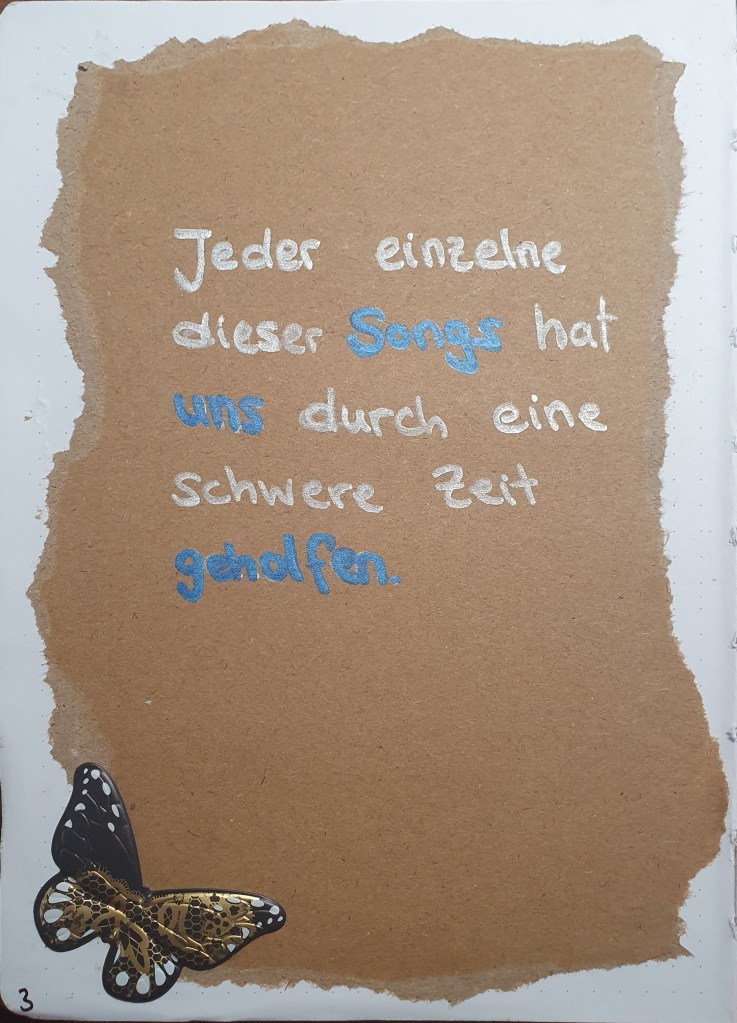 Jeder einzelne
dieser Songs hat
uns durch eine
schwere Zeit
geholfen.
3